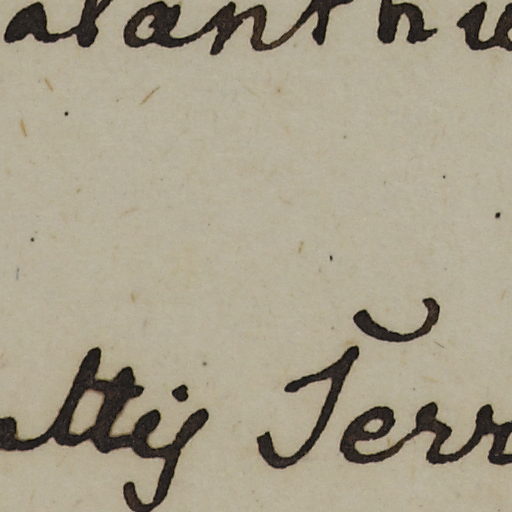 alanthu
attij Terr